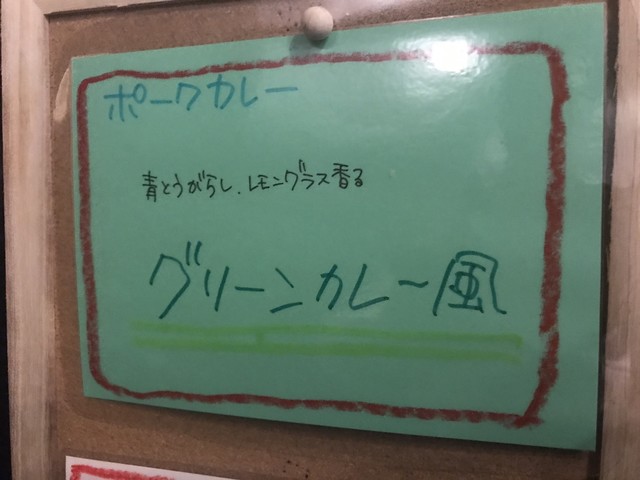 ポークカレー
青とうがらし、レモングラス香る
グリーンカレー風